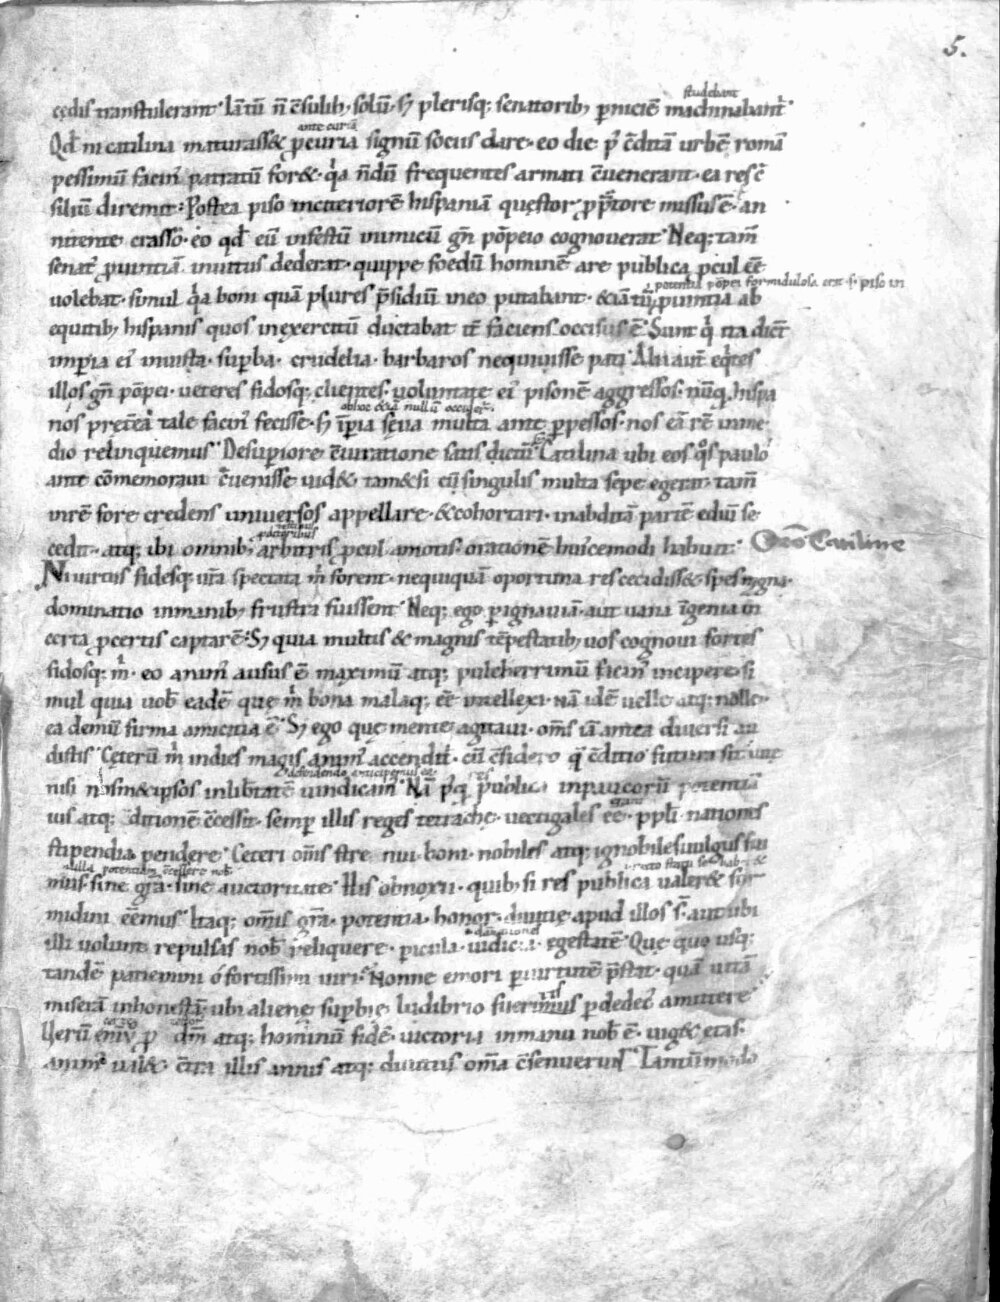 5.
studebant
cędis transtulerant. Iā tū n̄ c̄sulib; solū. s; plerisq; senatorib; p̱niciē machinabant̄.
ante curiā
Qd̄ ni catilina maturass& p̱ curia signū sociis dare. eo die p̾ c̄ditā urbē romā
pessimū facin̾ patratū for&. q̾a n̄dū frequentes armati c̄uenerant. ea res c̄
siliū diremit. Postea piso in citeriorē hispaniā quęstor p̱ p̄tore missus ē. an
nitente crasso. eo qd̄ eū infestū inimicū gn̄ pōpeio cognouerat. Neq; tam̄
senat̾ p̱uintiā inuitus dederat. quippe foedū hominē a re publica p̱cul eē
potentia pōpei formidulosa erat. s. piso in
uolebat. simul q̾a boni quā plures p̄sidiū in eo putabant. & iā tū p̱uintia ab
equitib; hispanis quos in exercitū ductabat it̄ faciens occisus ē. Sunt q̾ ita dic̄t
imp̱ia ei̾ iniusta. sup̱ba. crudelia. barbaros nequiuisse pati. Alii aut̄ eq̾tes
illos gn̄ pōpei. ueteres fidosq; clientes. uoluntate ei̾ pisonē aggressos. nūq̄ hispa
nos pretēa tale facin̾ fecisse. s; īp̱ia sęua multa ante p̱pessos. nos eā rē in me
dio relinquemus. De sup̱iore c̄iuratione satis dictū. Catilina ubi eos q̊s paulo
ante cōmemoraui c̄uenisse uid&. tam&si cū singulis multa sepe egerat. tam̄
in rē fore credens uniuersos appellare. & cohortari. in abditā partē ediū se
cedit. atq; ibi omnib; arbitris p̱cul amotis. orationē huiscemodi habuit. Or̄o Catiline
Ni uirtus fidesq; ur̄a spectata m̾ forent. nequiquā oportuna res cecidiss& spes magna.
dominatio in manib; frustra fuissent. Neq; ego p̱ ignauiā. aut uana īgenia in
certa p̱ certis captarē. S; quia multis & magnis tēpestatib; uos cognoui fortes
fidosq; m̾. eo anim̾ ausus ē maximū atq; pulcherrimū facin̾ incipere. si
mul quia uob̄ eadē quę m̾ bona malaq; eē intellexi. Nā idē uelle atq; nolle.
ea demū firma amicitia ē. S; ego quę mente agitaui. om̄s iā antea diuersi au
distis. Cęterū m̾ in dies magis anim̾ accendit̄. cū c̄sidero q̄ c̄ditio futura sit uitę
nisi nosm&ipsos in lib̄tatē uindicam̾. Nā p̾q̄ res publica in paucorū potentiā
ius atq; ditionē c̄cessit. semp̱ illis reges tetrachę. uectigales eē. pp̱li nationes
stipendia pendere. Ceteri om̄s str̄e nui. boni. nobiles atq; ignobiles uulgus fui
mus sine gr̄a. sine auctoritate. Iis obnoxii. quib; si res publica ualer& for
midini eēmus. Itaq; om̄is gr̄a. potentia. honor. diuitię apud illos s̄t. aut ubi
illi uolunt. repulsas nob̄ reliquere. p̱icula. iudicia. egestatē. Quę quo usq;
tandē patiemini o fortissimi uiri. Nonne emori p̱ uirtutē p̄stat. quā uitā
miserā inhonestā. ubi alienę sup̱bię ludibrio fueris. p̱ dedec̾ amittere.
Uerū enim p̱ dm̄ atq; hominū fidē. uictoria in manu nob̄ ē. uig& etas.
anim̾ ual&. c̄tra illis annis atq; diuitiis om̄a c̄senuerunt. Tantū modo